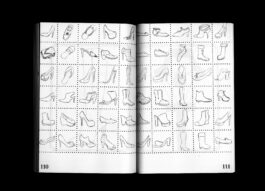 110
111